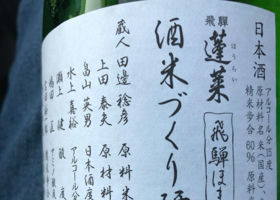 日本酒
アルコール分15度
原材料名 米(国産)、
精米歩合 60% 原料
飛騨
蓬莱
ほうらい
飛騨ほま
酒米づくり
蔵人 田邊稔彦 原料米
上田泰夫 原材料
畠山英男 日本酒度
水上喜裕 酸度
瀬上健
アミノ酸度